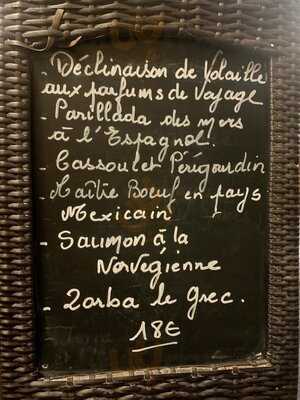 . Déclinaison de Volaille
aux parfums de Voyage
- Parillada des mers
à l'Espagnol.
- Cassoulet Périgourdin
- Maître Boeuf en pays
Mexicain
- Saumon à la
Norvégienne
- Zorba le Grec.
18€